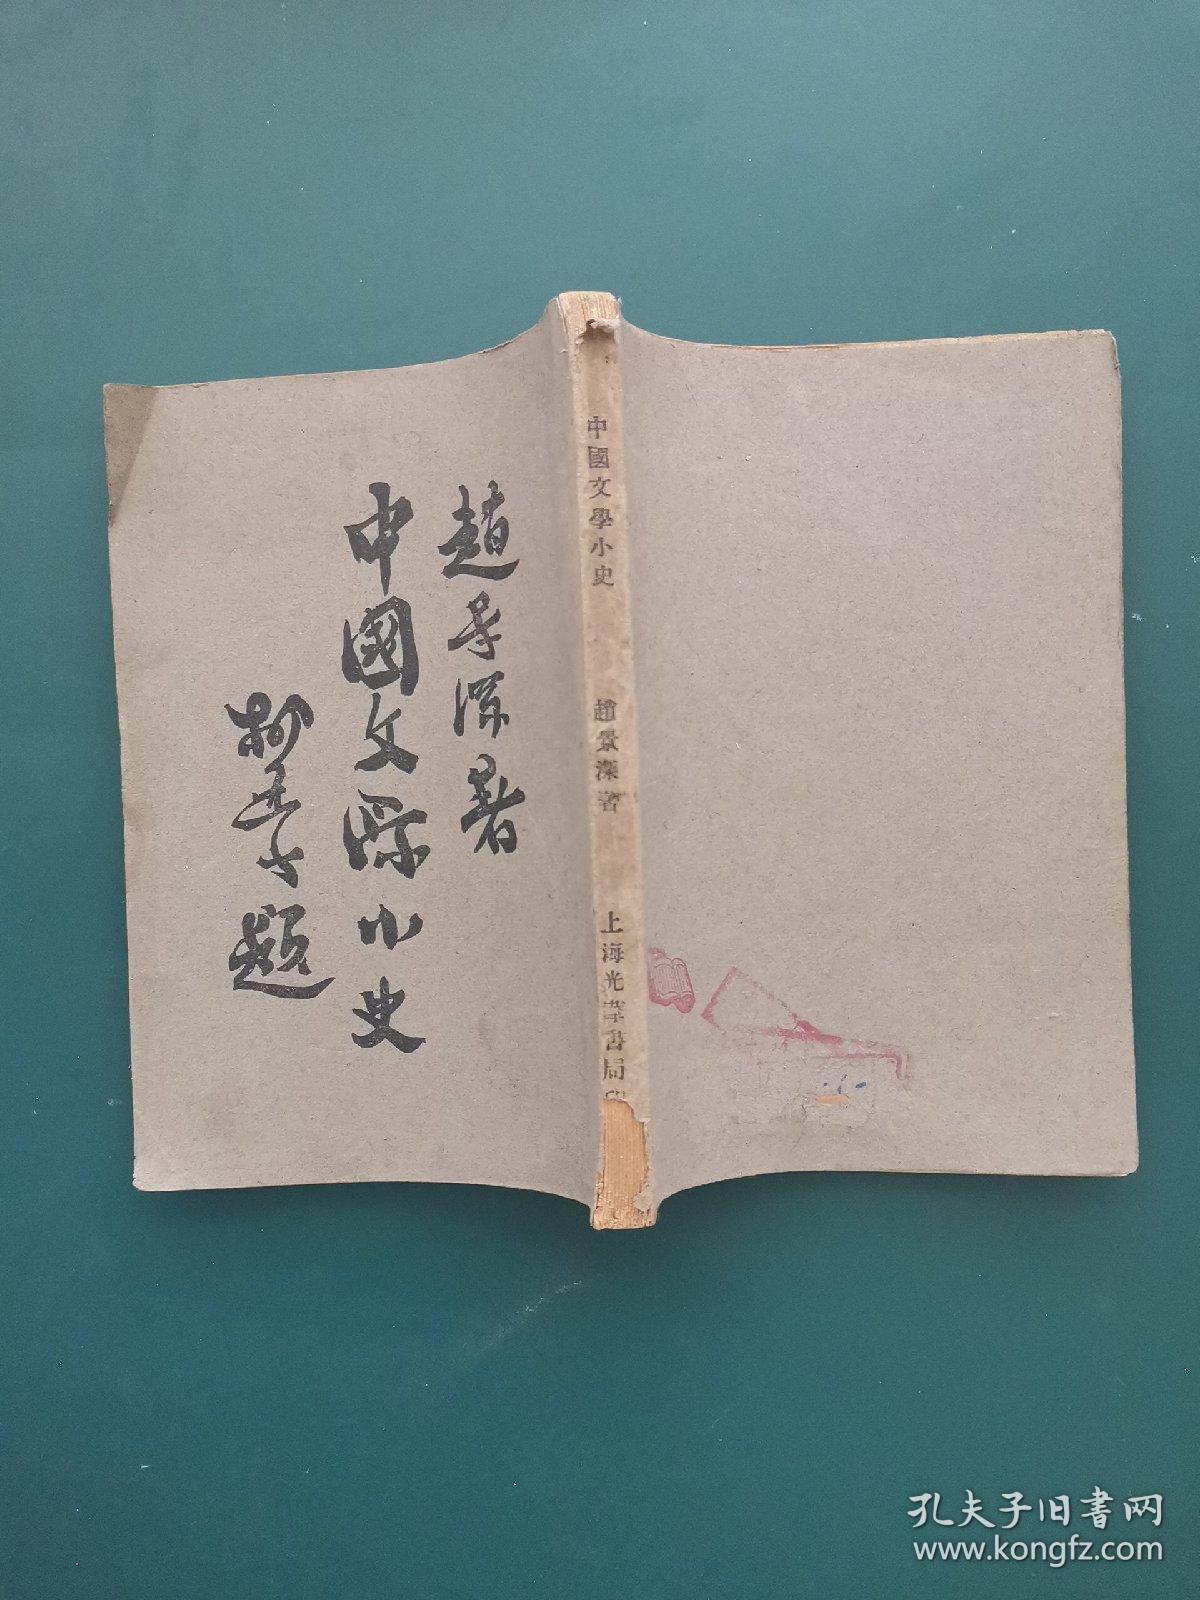 趙景深著
中國文學小史
題
中國文學小史
趙景深著
上海光華書局印
孔夫子旧书网
www.kongfz.com